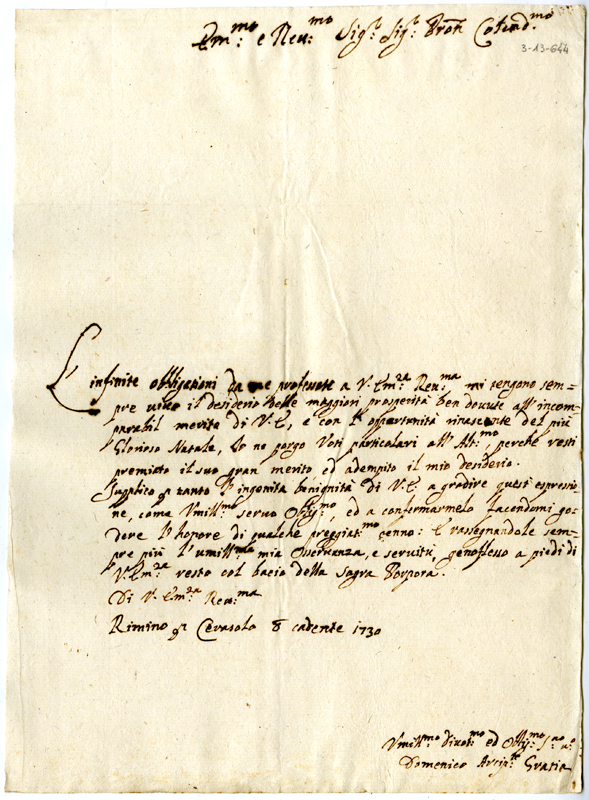 Em.mo e Reu.mo Sig.r Sig.r Pron Colend.mo
3-13-644
L'infinite obbligationi da me professate a V. Em.za Reu.ma, mi tengono sem=
pre uiuo il desiderio delle maggiori prosperità ben douute all'incom=
parabil merito di V. E., e con l'opportunità rinascente del più
Glorioso Natale, Io ne porgo Voti particolari all'Alt.mo, perche resti
premiato il suo gran merito ed adempito il mio desiderio.
Supplico p tanto l'ingenita benignità di V. E. a gradire questi espressio=
ne, come Vmill.mo seruo Obbg.mo, ed a confermarmelo facendomi go=
dere l'honore di qualche preggiat.mo cenno: E rassegnandole sem=
pre più l'umill.ma mia Osseruanza, e seruitù, genuflesso a piedi di
V. Em.za resto col bacio della Sagra Porpora.
Di V. Em.za Reu.ma
Rimino p Cerasolo 8 cadente 1730
Vmill.mo Diuot.mo ed Obbg.mo S.re u.o
Domenico Arcip.te Grasia